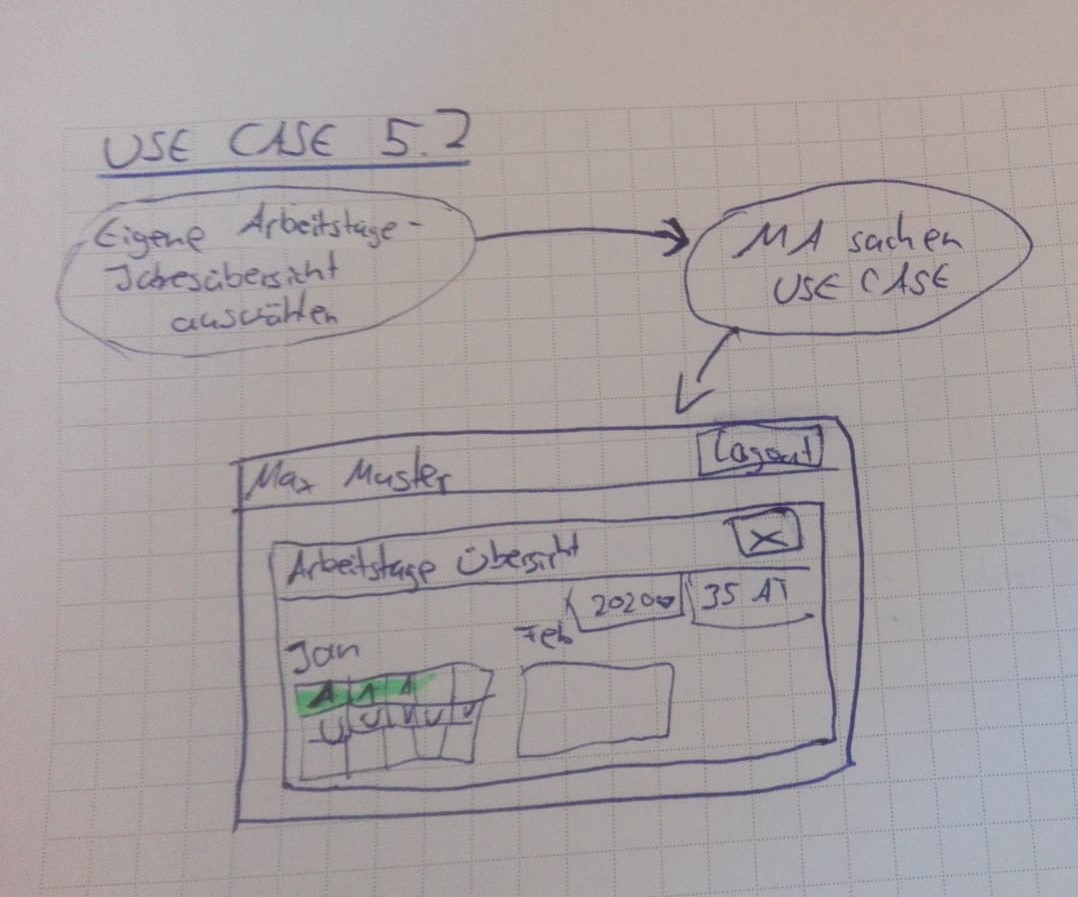 USE CASE 5.2
Eigene Arbeitstage-
Jahresübersicht
auswählen
MA suchen
USE CASE
Max Muster
Logout
Arbeitstage Übersicht
X
2020
35 AT
Jan
Feb
A A A
U U U U U